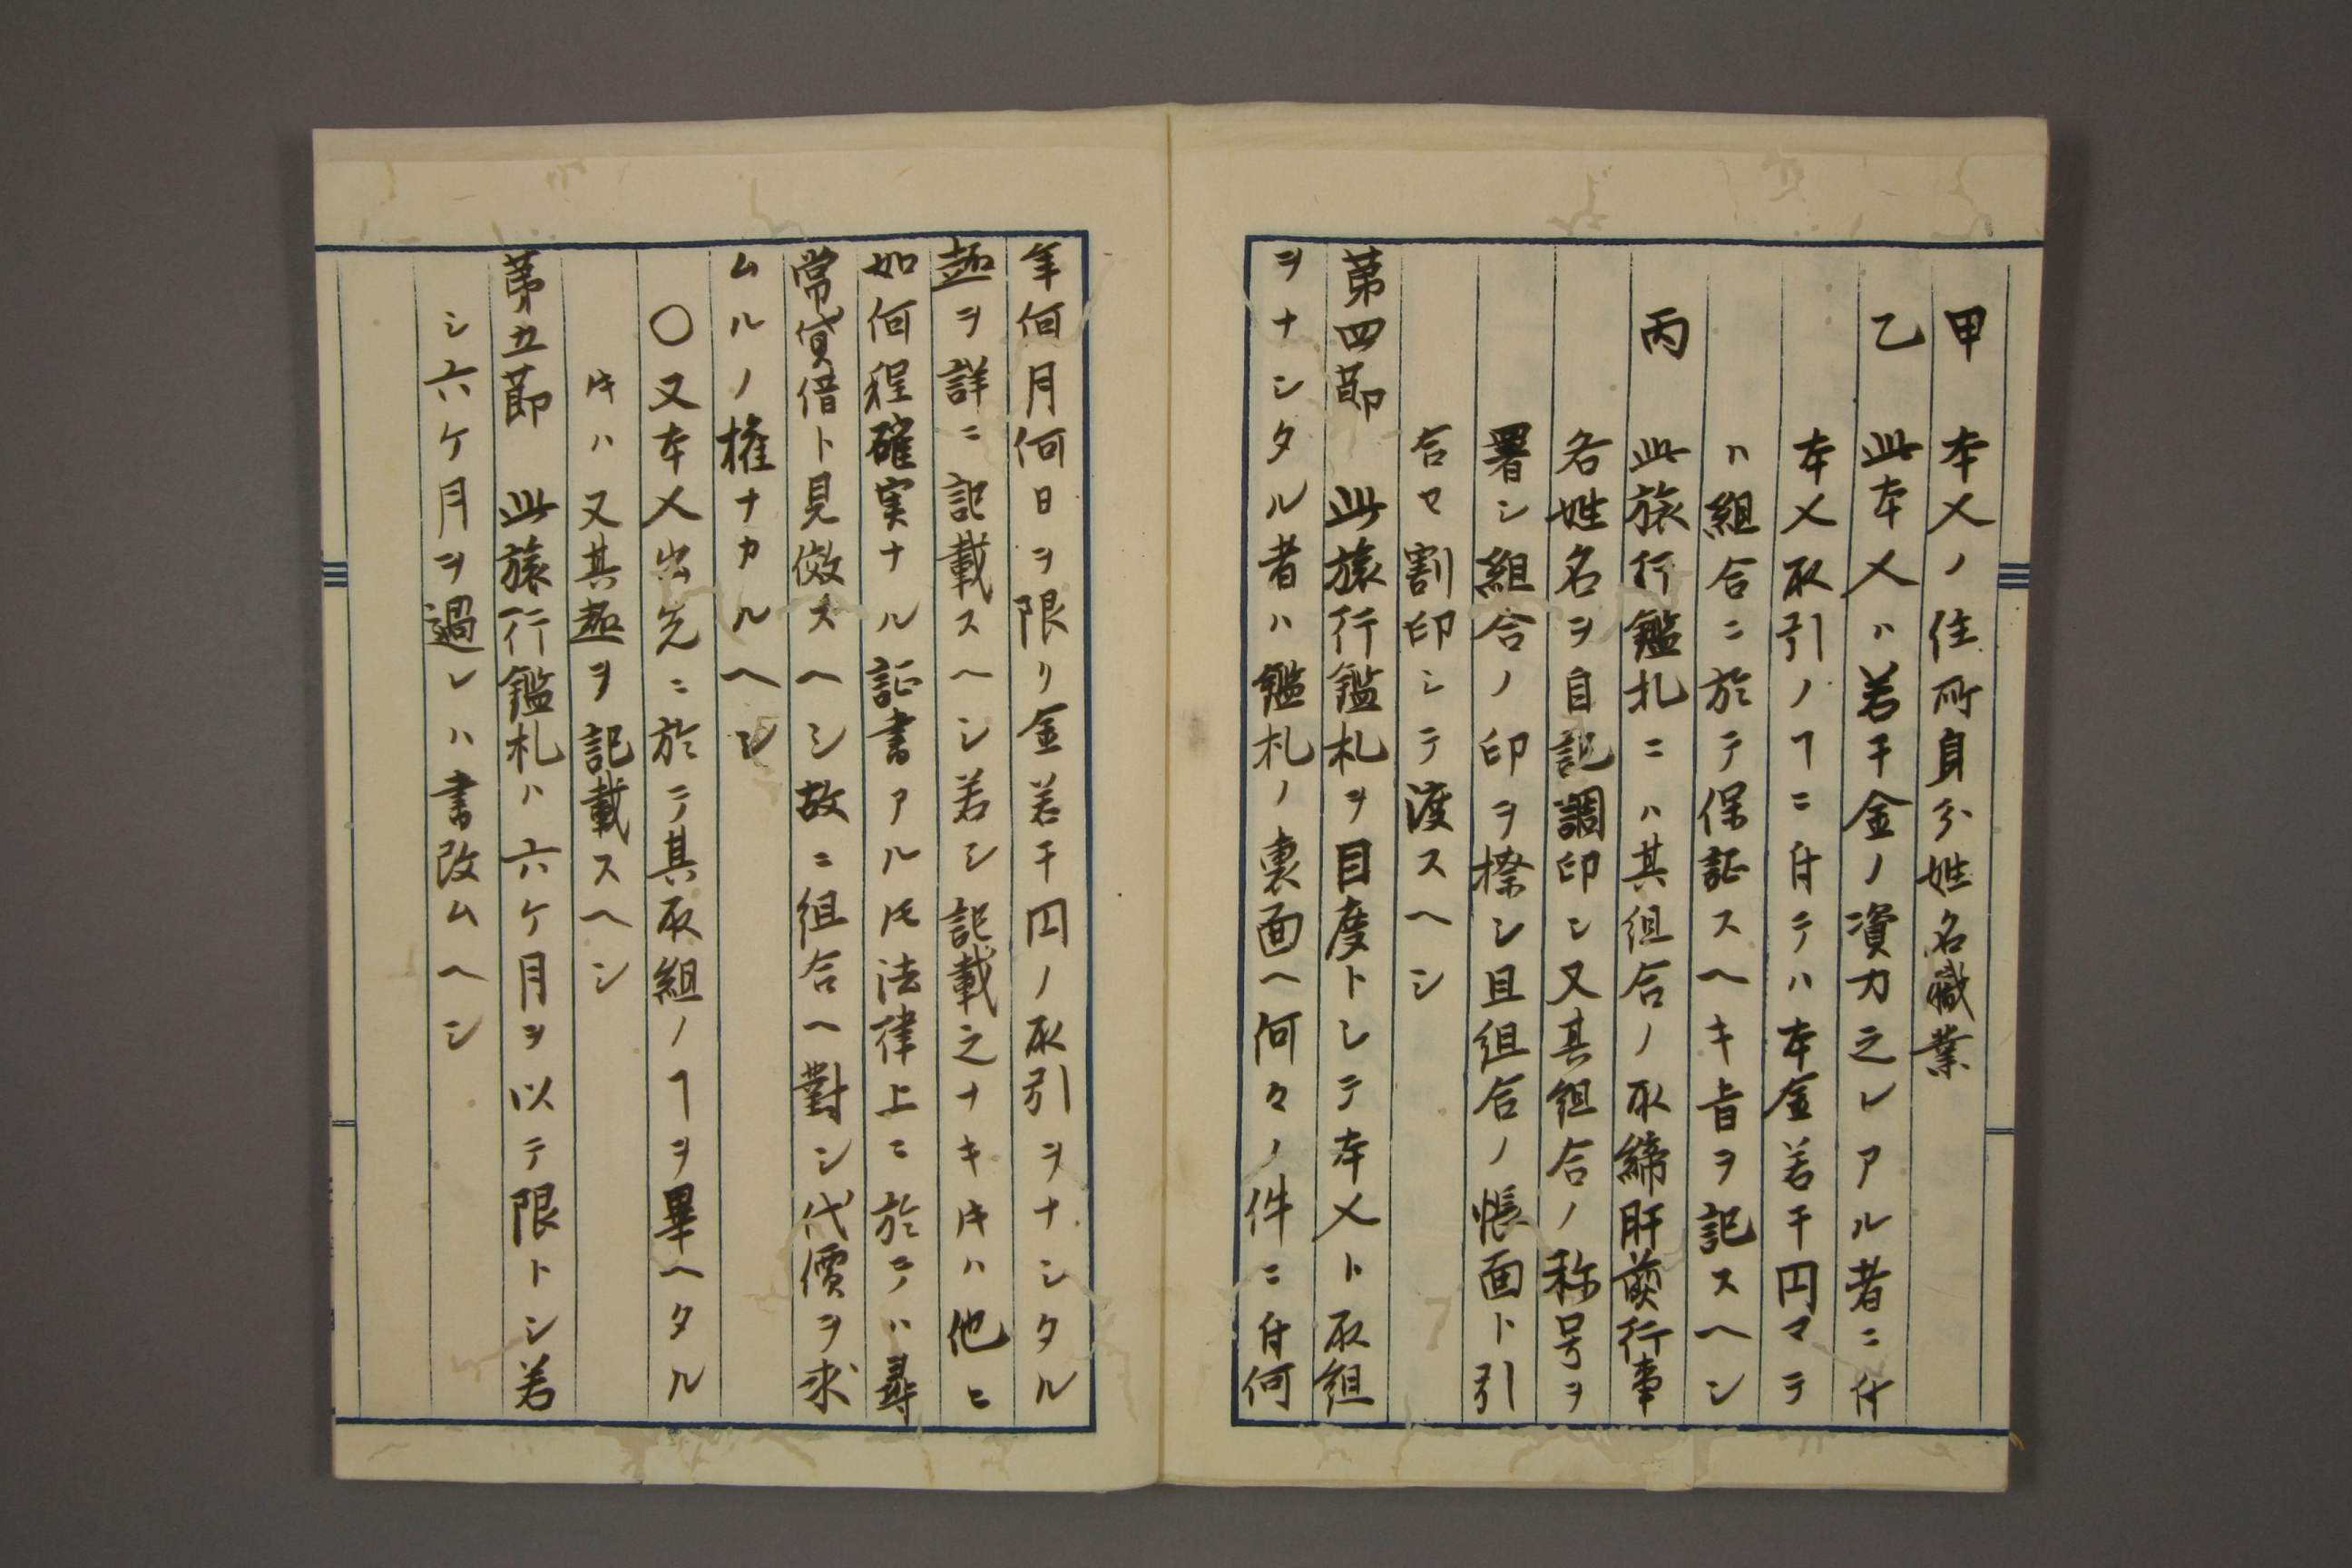 甲　本人ノ住所身分姓名職業
乙　此本人ハ若干金ノ資力之レアル者ニ付
本人取引ノヿニ付テハ本金若干円マテ
ハ組合ニ於テ保証スヘキ旨ヲ記スヘシ
丙　此旅行鑑札ニハ其組合ノ取締肝煎行事
各姓名ヲ自記調印シ又其組合ノ称号ヲ
署シ組合ノ印ヲ搽シ且組合ノ帳面ト引
合セ割印シテ渡スヘシ
第四節　此旅行鑑札ヲ目度トシテ本人ト取組
ヲナシタル者ハ鑑札ノ裏面ヘ何々ノ件ニ付何
年何月何日ヲ限リ金若干円ノ取引ヲナシタル
趣ヲ詳ニ記載スヘシ若シ記載之ナキ𪜈ハ他ニ
如何程確実ナル証書アル𪜈法律上ニ於テハ尋
常貸借ト見做スヘシ故ニ組合ヘ對シ代價ヲ求
ムルノ権ナカルヘシ
〇又本人出先ニ於テ其取組ノヿヲ畢ヘタル
キハ又其趣ヲ記載スヘシ
第五節　此旅行鑑札ハ六ケ月ヲ以テ限トシ若
シ六ケ月ヲ過レハ書改ムヘシ